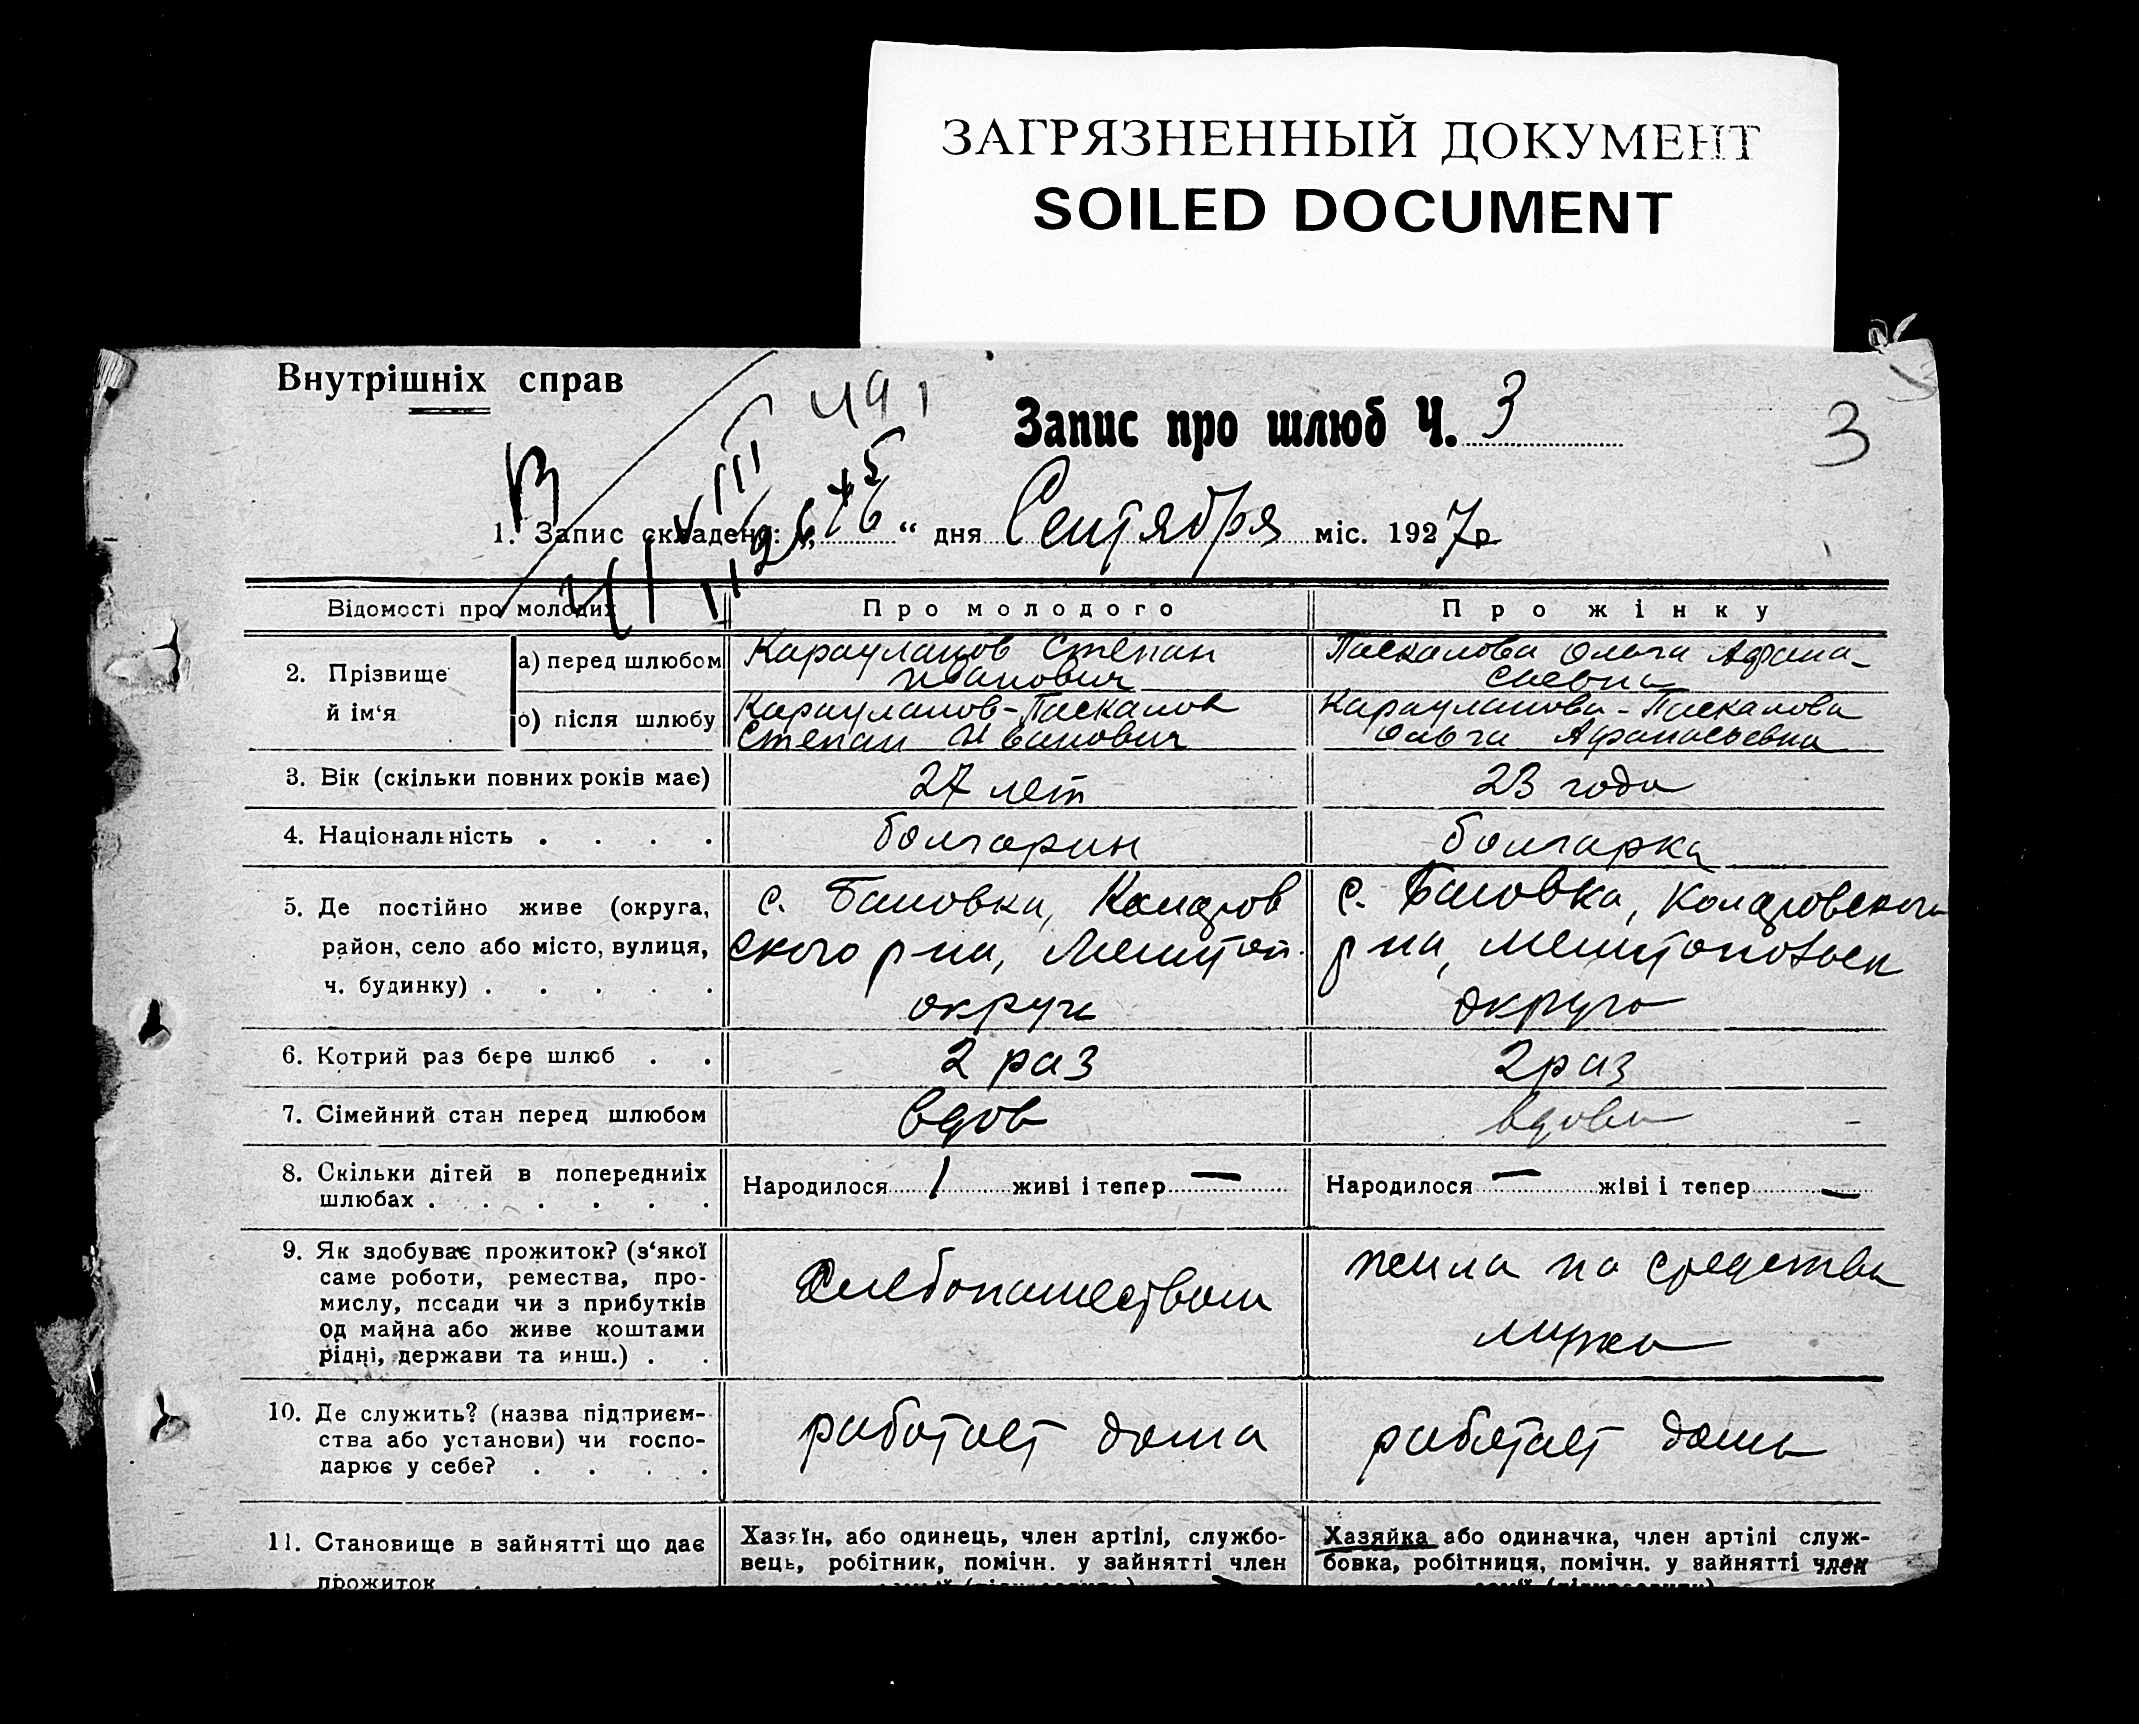 ЗАГРЯЗНЕННЫЙ ДОКУМЕНТ
SOILED DOCUMENT
Внутрішніх справ
Запис про шлюб Ч. 3
3
1. Запис складено: „16“ дня Сентября міс. 1927 р
Відомості про молодих
Про молодого
Про жінку
2. Прізвище й ім‘я
а) перед шлюбом
Карауланов Степан
Иванович
Паскалова Ольга Афана-
сиевна
о) після шлюбу
Карауланов-Паскалов
Степан Иванович
Карауланова-Паскалова
Ольга Афанасьевна
3. Вік (скільки повних років має)
27 лет
23 года
4. Національність . . . .
болгарин
болгарка
5. Де постійно живе (округа,
район, село або місто, вулиця,
ч. будинку) . . . . .
с. Бановка, Коларов
ского р-на, Мелитоп.
округа
с. Бановка, Коларовского
р-на, Мелитопольск
округа
6. Котрий раз бере шлюб . .
2 раз
2 раз
7. Сімейний стан перед шлюбом
вдов
вдова
8. Скільки дітей в попередниіх
шлюбах . . . . . .
Народилося 1 живі і тепер —
Народилося — жіві і тепер —
9. Як здобуває прожиток? (з‘якої
саме роботи, ремества, про-
мислу, посади чи з прибутків
од майна або живе коштами
рідні, держави та инш.) . .
Хлебопашеством
жила на средства
мужа
10. Де служить? (назва підприєм-
ства або установи) чи госпо-
дарює у себе? . . . .
работает дома
работает дома
11. Становище в зайнятті що дає
прожиток
Хазяїн, або одинець, член артілі, службо-
вець, робітник, помічн. у зайнятті член
Хазяйка або одиначка, член артілі служ-
бовка, робітниця, помічн. у зайнятті член